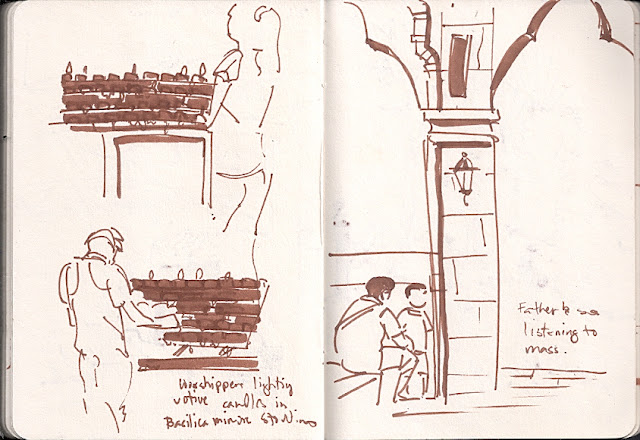 Worshippers lighting
votive candles in
Basilica minore Sto Nino
Father & son
listening to
mass.